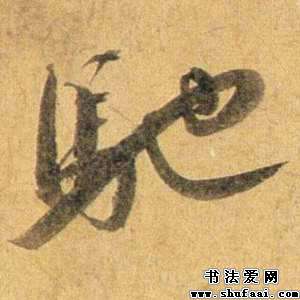 馳
书法爱网
www.shufaai.com